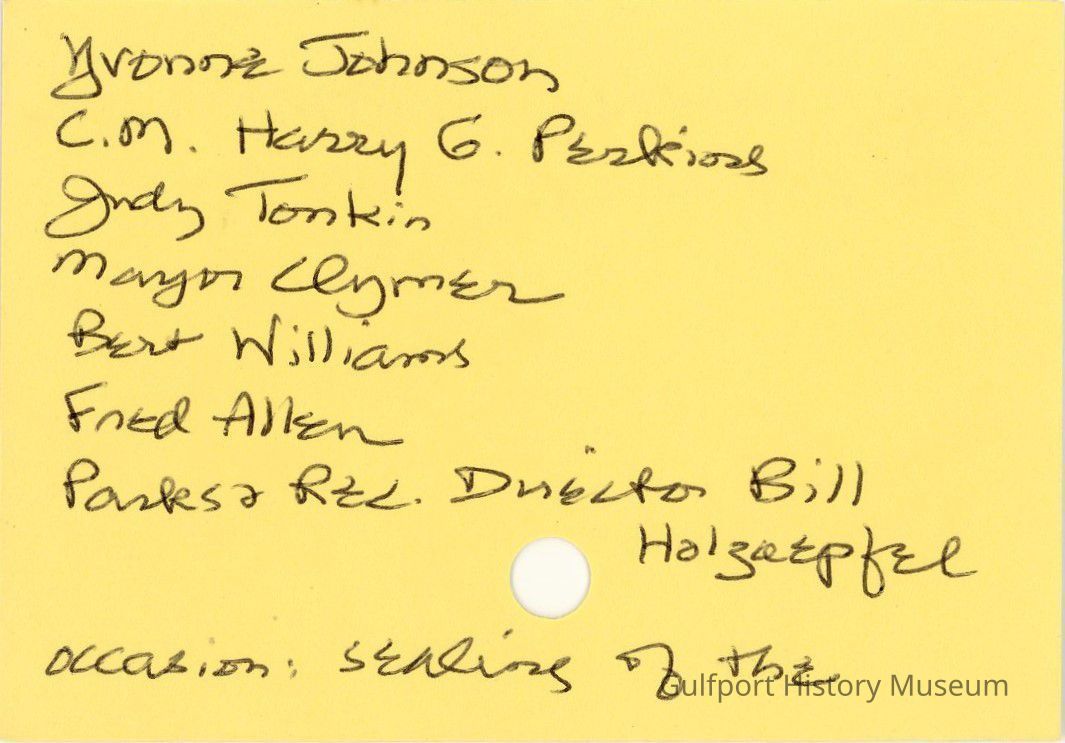 Yvonne Johnson
C.M. Harry G. Perkins
Judy Tonkin
Mayor Clymer
Bert Williams
Fred Allen
Parks & Rec. Director Bill
Holzaepfel
occasion: sealing of the
Gulfport History Museum